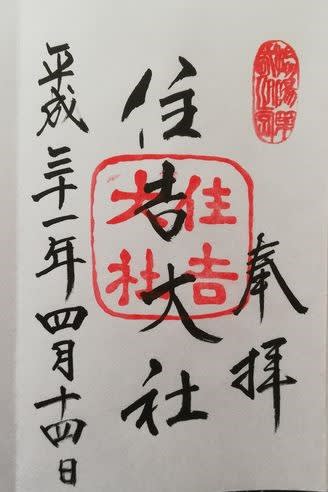 奉拝
住吉大社
住吉
大社
平成三十一年四月十四日